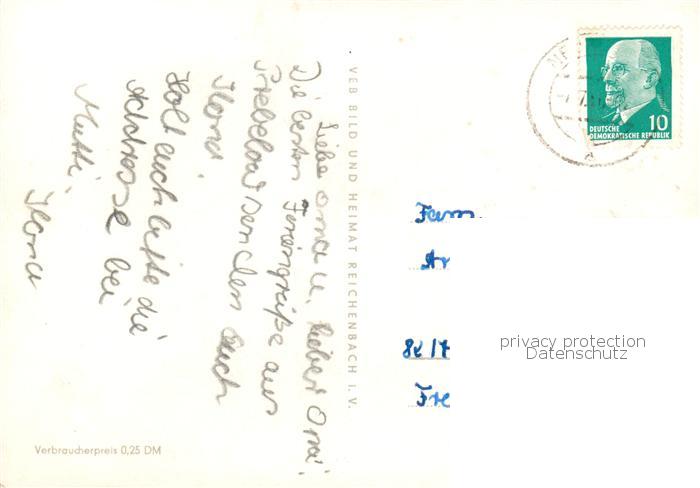 Liebe Oma u. lieber Opa!
Die besten Feriengrüße aus
senden Euch
Ilona.
Holt euch bitte die
Adresse bei
Mutti.
Ilona
VEB BILD UND HEIMAT REICHENBACH I. V.
Verbraucherpreis 0,25 DM
10
DEUTSCHE
DEMOKRATISCHE REPUBLIK
Fam.
Ar
Fre
privacy protection
Datenschutz